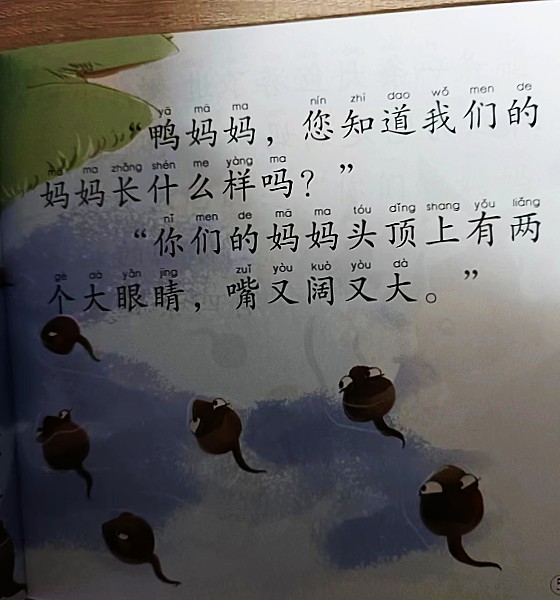 yā mā ma nín zhī dao wǒ men de
“鸭妈妈，您知道我们的
mā ma zhǎng shén me yàng ma
妈妈长什么样吗？”
nǐ men de mā ma tóu dǐng shang yǒu liǎng
“你们的妈妈头顶上有两
gè dà yǎn jing zuǐ yòu kuò yòu dà
个大眼睛，嘴又阔又大。”